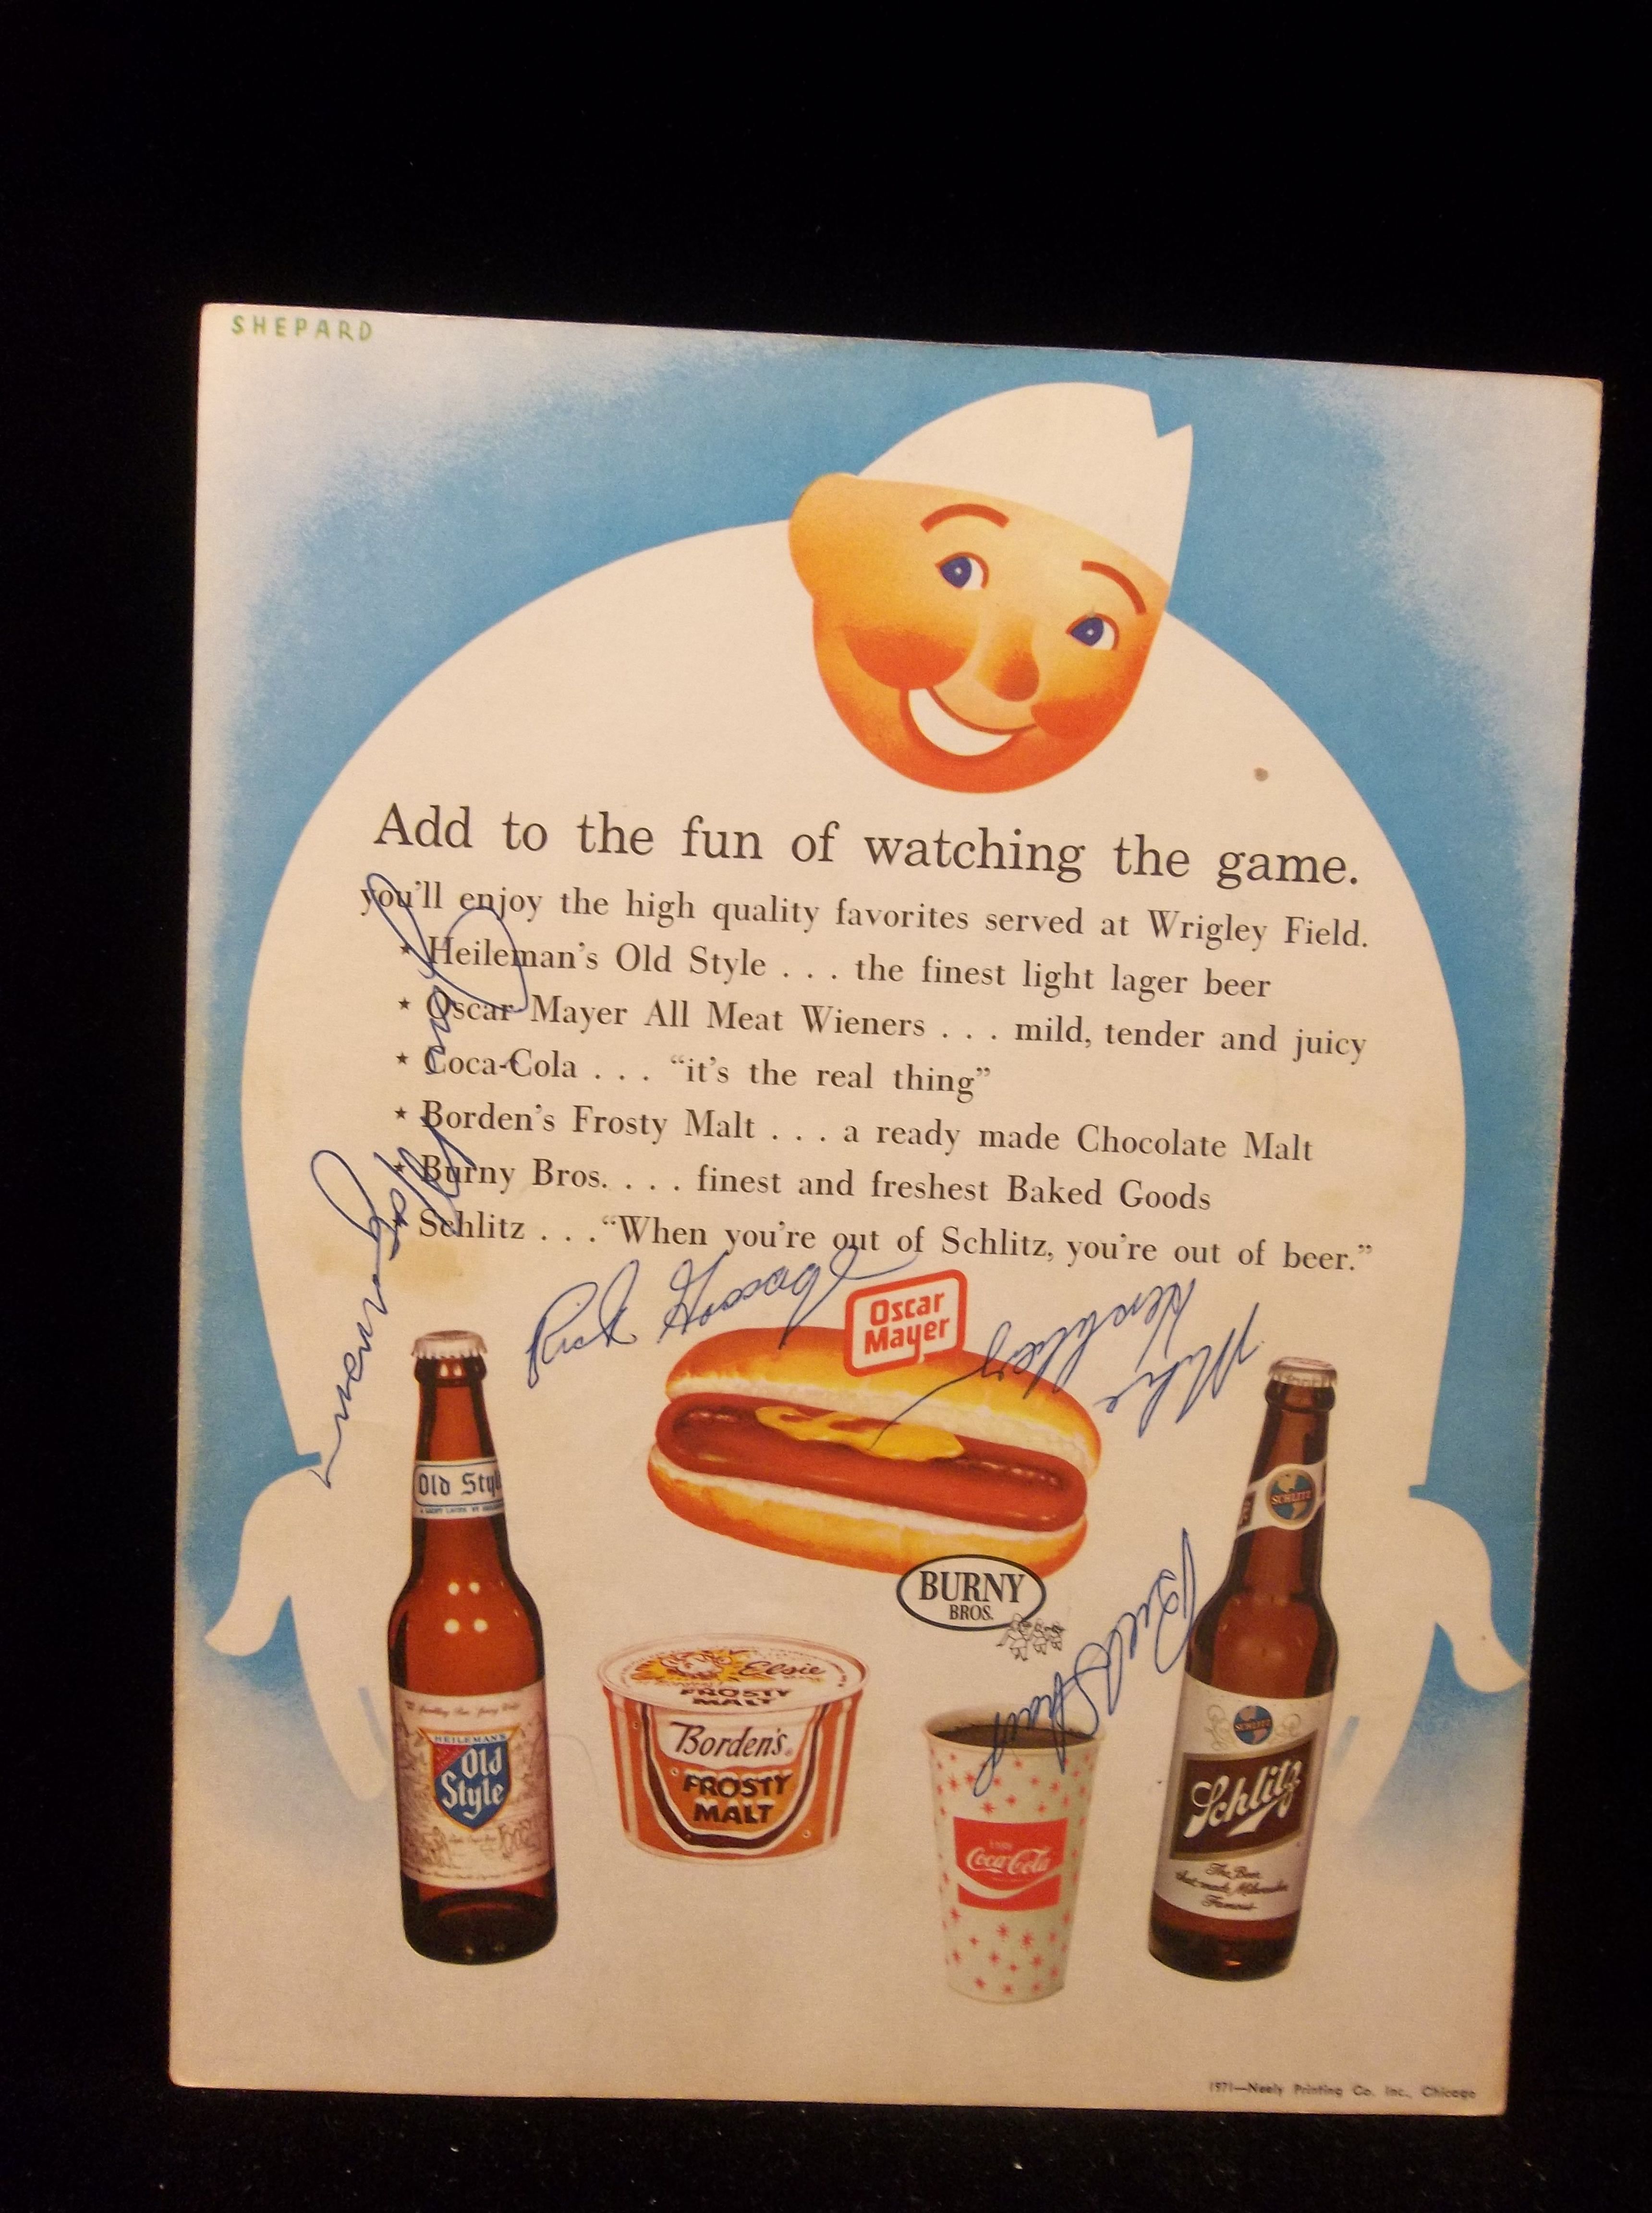 SHEPARD
Add to the fun of watching the game.
you'll enjoy the high quality favorites served at Wrigley Field.
★ Heileman's Old Style . . . the finest light lager beer
★ Oscar Mayer All Meat Wieners . . . mild, tender and juicy
★ Coca-Cola . . . “it's the real thing”
★ Borden's Frosty Malt . . . a ready made Chocolate Malt
★ Burny Bros. . . . finest and freshest Baked Goods
★ Schlitz . . . “When you're out of Schlitz, you're out of beer.”
Rich Gossage
Oscar
Mayer
Mike
Hershberger
Old Style
SCHLITZ
BURNY
BROS.
Bill
Elsie
FROSTY
MALT
Borden's
FROSTY
MALT
HEILEMAN'S
Old
Style
Coca-Cola
SCHLITZ
Schlitz
The Beer
that made Milwaukee
Famous
1971—Neely Printing Co. Inc., Chicago